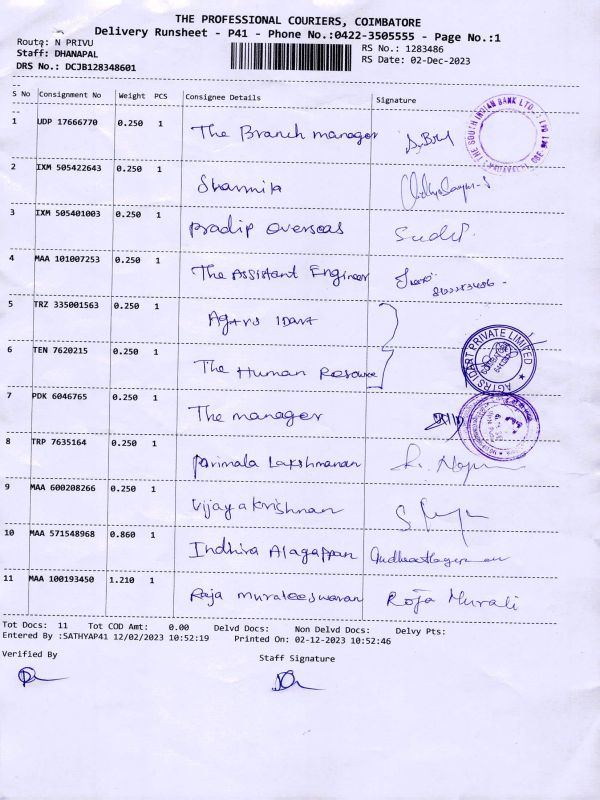 THE PROFESSIONAL COURIERS, COIMBATORE
Delivery Runsheet - P41 - Phone No.:0422-3505555 - Page No.:1
Route: N PRIVU
RS No.: 1283486
Staff: DHANAPAL
RS Date: 02-Dec-2023
DRS No.: DCJB128348601
S No Consignment No Weight PCS Consignee Details Signature
1 UDP 17666770 0.250 1 The Branch manager
2 IXM 505422643 0.250 1 Sharmila
3 IXM 505401003 0.250 1 pradip overseas
4 MAA 101007253 0.250 1 The Assistant Engineer
5 TRZ 335001563 0.250 1 Agtrs IDart
6 TEN 7620215 0.250 1 The Human Resource
AGTRS IDART PRIVATE LIMITED
7 PDK 6046765 0.250 1 The manager
8 TRP 7635164 0.250 1 parimala Lakshmanan
9 MAA 600208266 0.250 1 vijayakrishnan
10 MAA 571548968 0.860 1 Indhira Alagappan
11 MAA 100193450 1.210 1 Raja murateeswaran Roja Murali
Tot Docs: 11 Tot COD Amt: 0.00 Delvd Docs: Non Delvd Docs: Delvy Pts:
Entered By :SATHYAP41 12/02/2023 10:52:19 Printed On: 02-12-2023 10:52:46
Verified By Staff Signature